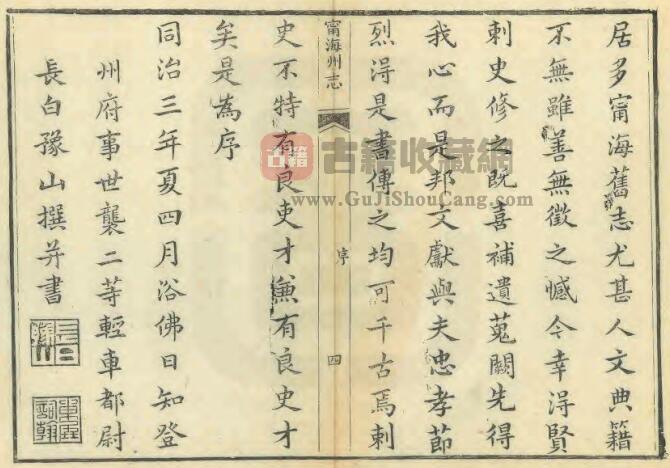 居多甯海舊志尤甚人文典籍
不無雖善無徵之憾今幸淂賢
刺史修之既喜補遺蒐闕先得
我心而是邦文獻與夫忠孝節
烈淂是書傳之均可千古焉刺
甯海州志
序
四
史不特有良吏才兼有良史才
矣是為序
同治三年夏四月浴佛日知登
州府事世襲二等輕車都尉
長白豫山撰并書
古籍
古籍收藏網
www.GuJiShouCang.com